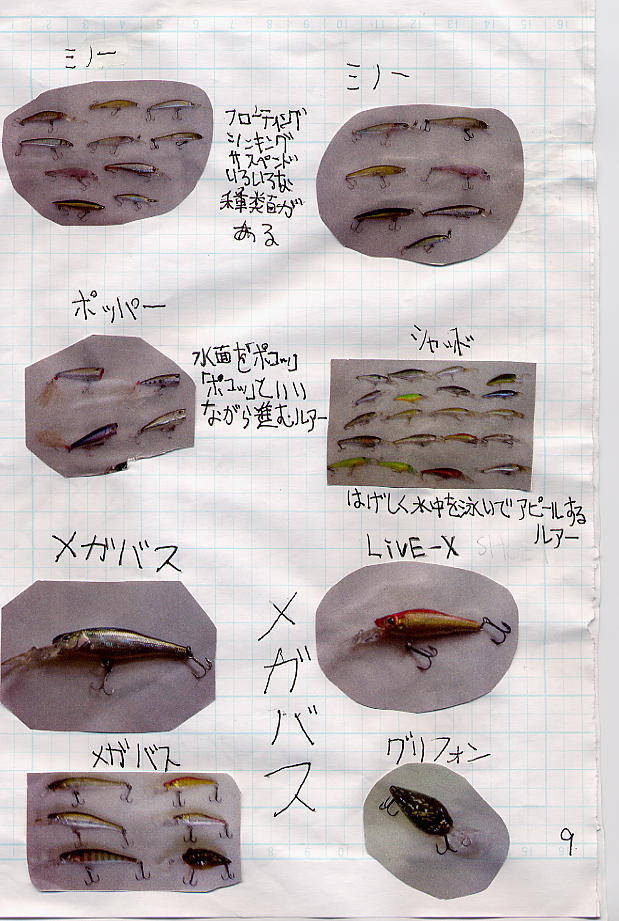 ミノー
ミノー
フローティング
シンキング
サスペンド
いろいろな
種類が
ある
ポッパー
水面を「ポコッ」
「ポコッ」といい
ながら進むルアー
シャッド
はげしく水中を泳いでアピールする
ルアー
メガバス
LiVE-X
メガバス
メガバス
グリフォン
9